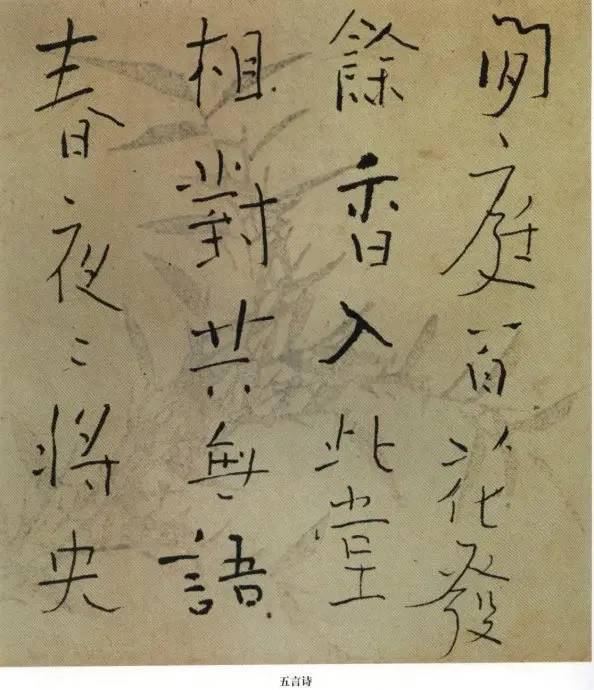 閒庭百花發
餘香入此堂
相對共無語
春夜〻將央
五言诗